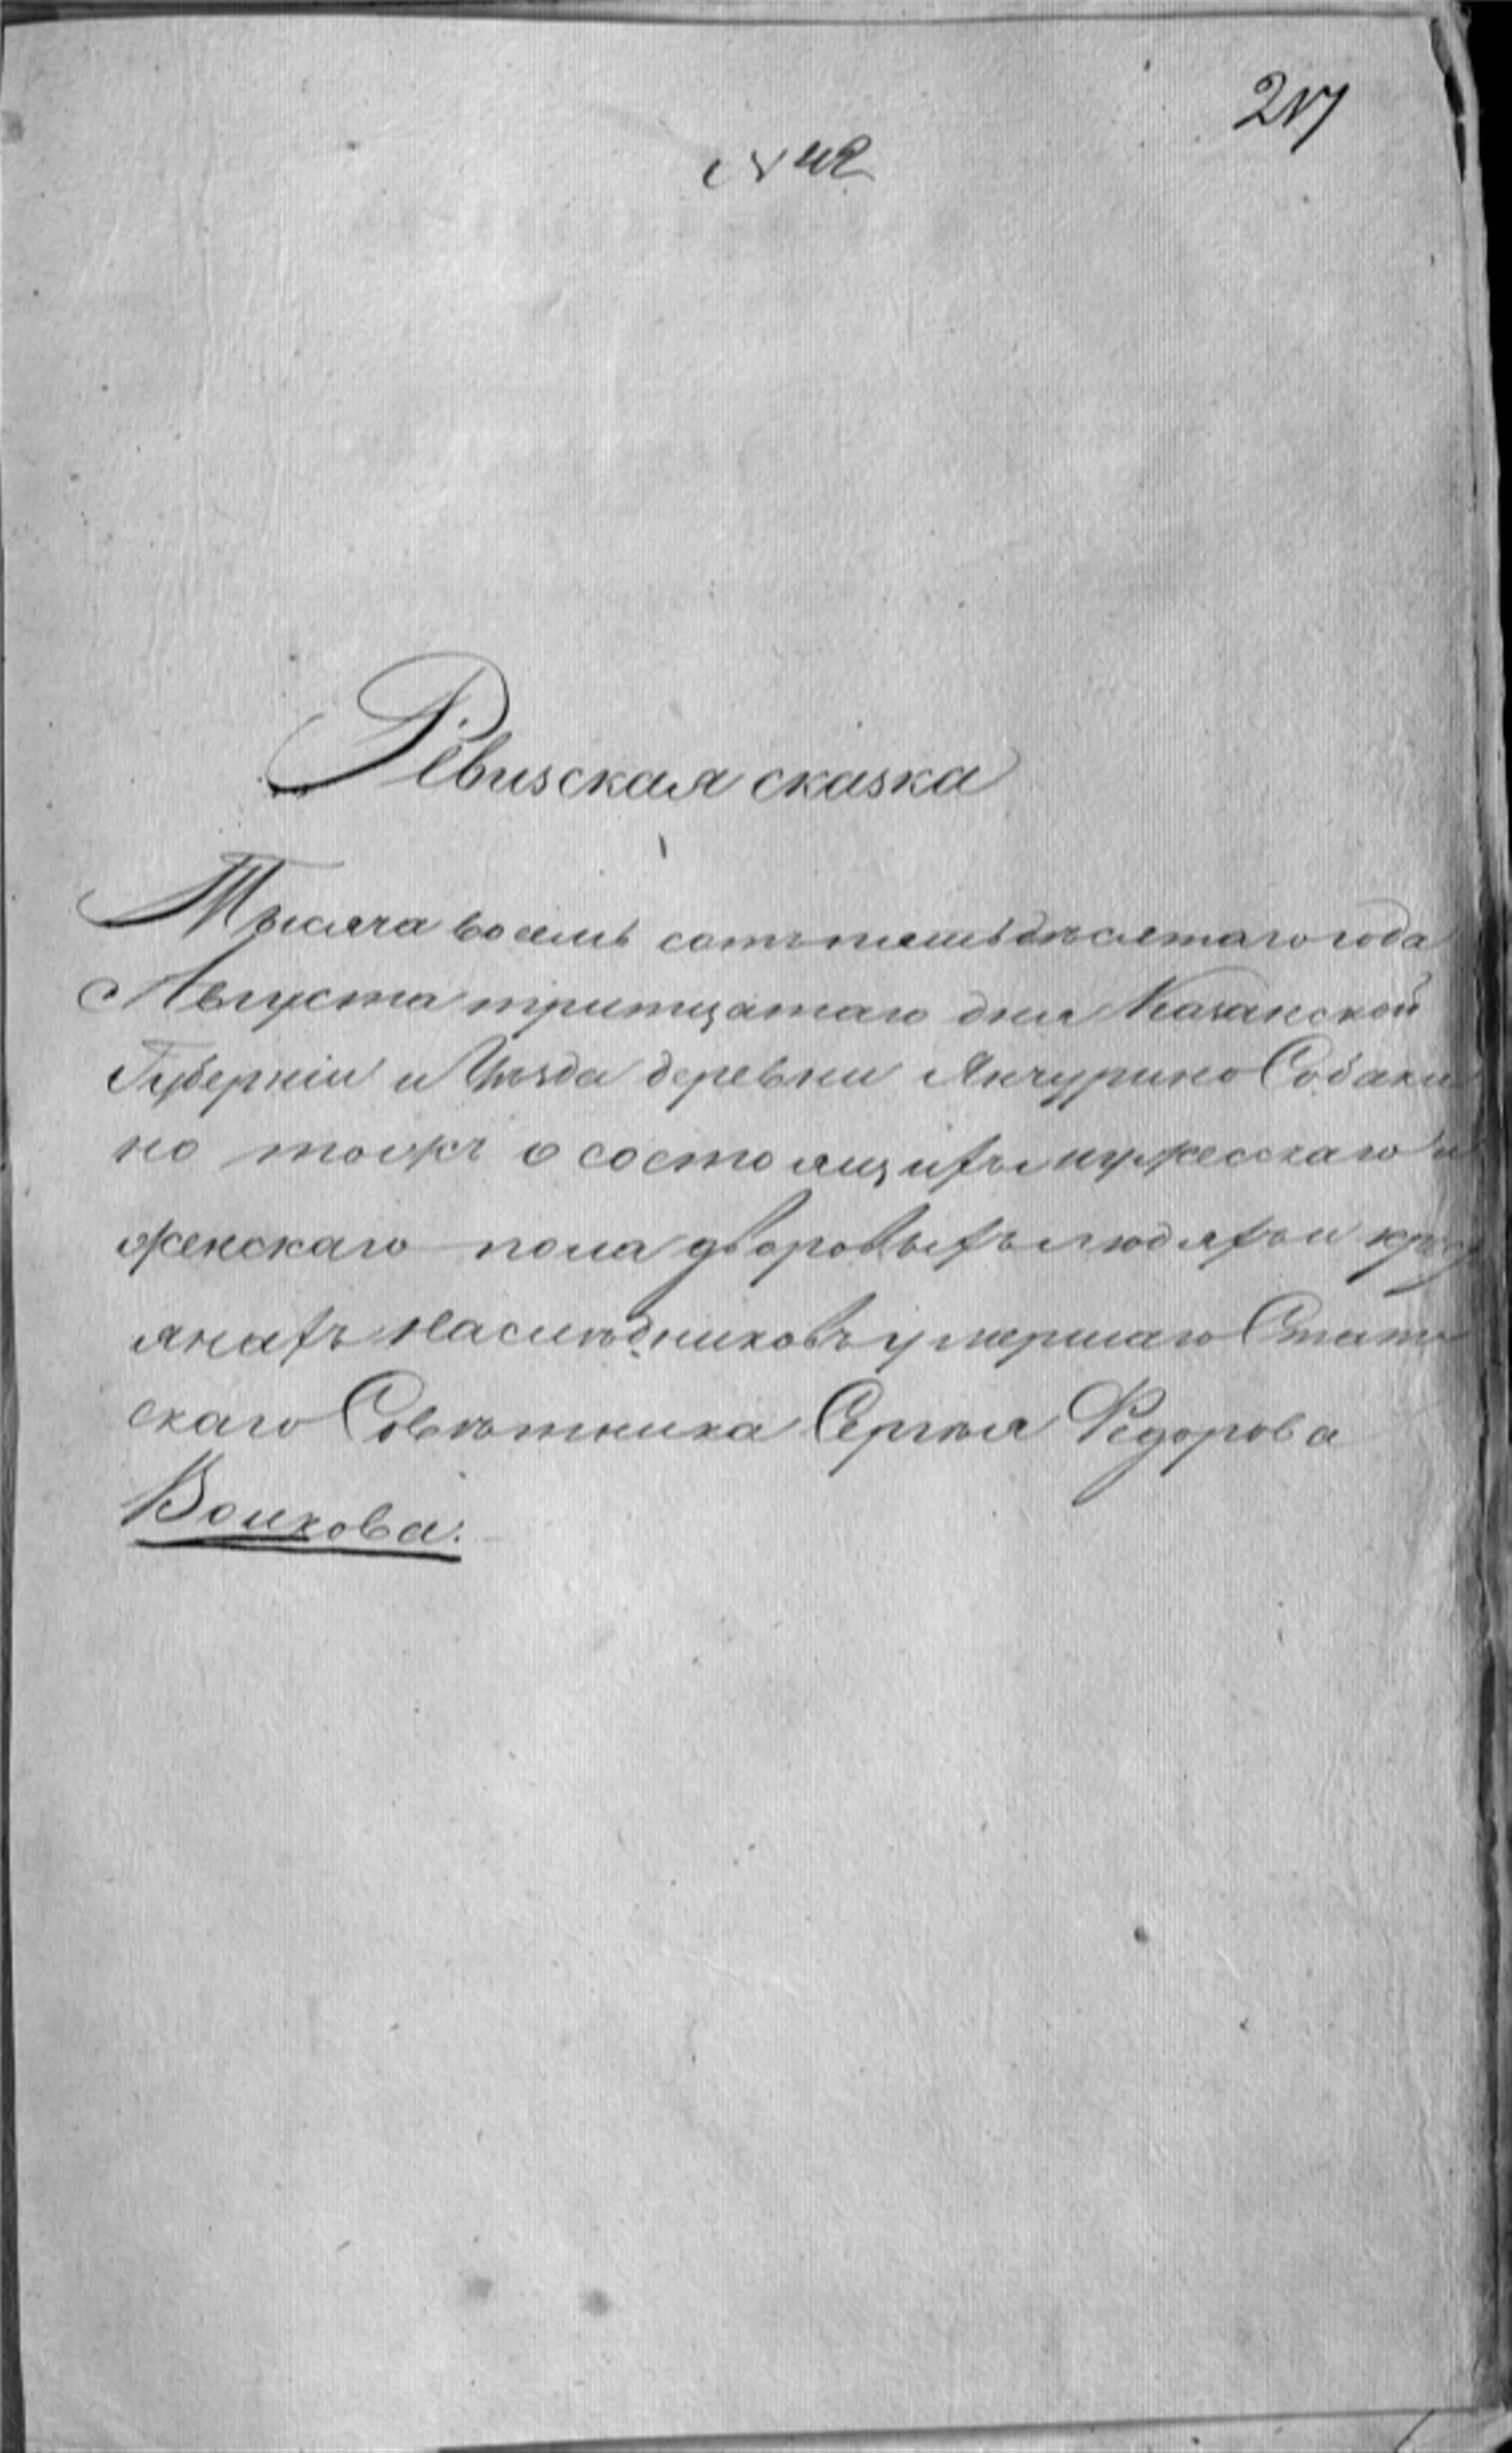 217
№ 42
Ревизская сказка
Тысяча восемь сотъ пятьдесятаго года
Августа тритцатаго дня Казанской
Губерніи и Уѣзда деревни Янчурино Собаки
но тожъ о состоящихъ мужескаго и
женскаго пола дворовыхъ людяхъ и крест
янахъ наслѣдниковъ умершаго Стат
скаго Совѣтника Сергѣя Федорова